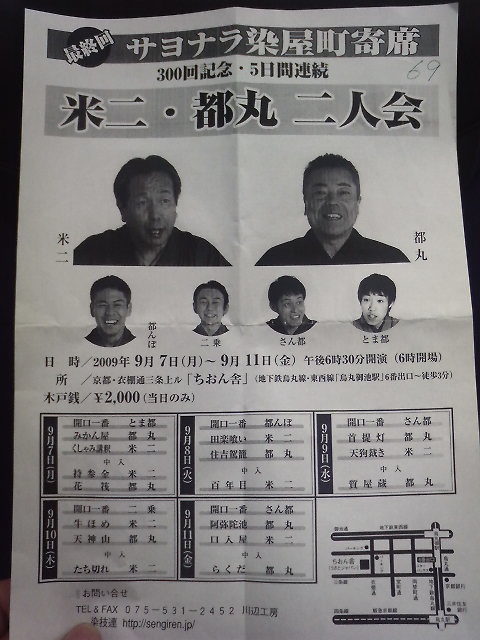 最終回
サヨナラ染屋町寄席
300回記念・5日間連続
69
米二・都丸 二人会
米二
都丸
都んぼ
二乗
さん都
とま都
日 時／2009年 9月7日(月)～9月11日(金) 午後6時30分開演（6時開場）
所 ／京都・衣棚通三条上ル「ちおん舎」（地下鉄烏丸線・東西線「烏丸御池駅」6番出口～徒歩3分）
木戸銭／¥2,000（当日のみ）
9月7日(月)
開口一番 とま都
みかん屋 都丸
くしゃみ講釈 米二
中入
持参金 米二
花筏 都丸
9月8日(火)
開口一番 都んぼ
田楽喰い 米二
住吉駕籠 都丸
中入
百年目 米二
9月9日(水)
開口一番 さん都
首提灯 都丸
天狗裁き 米二
中入
質屋蔵 都丸
9月10日(木)
開口一番 二乗
牛ほめ 米二
天神山 都丸
中入
たち切れ 米二
9月11日(金)
開口一番 さん都
阿弥陀池 都丸
口入屋 米二
中入
らくだ 都丸
御池通
地下鉄東西線
ちおん舎
三条通
四条通
阪急京都線
お問い合せ
TEL＆FAX 075－531－2452 川辺工房
染技連 http://sengiren.jp/